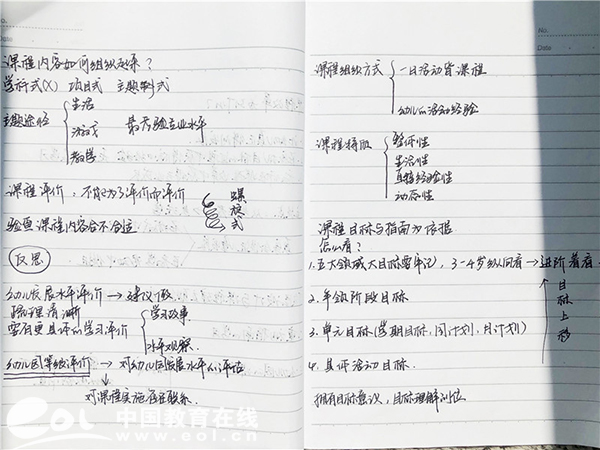 No.
Date
课程内容如何组织起来？
学科式(X) 项目式 主题式
主题途径
生活
游戏 最考验专业水平
教学
课程评价：不能为了评价而评价
验查课程内容合不合适
螺旋式
反思
幼儿发展水平评价→建议做
梳理清晰
学习故事
需有更具体的学习评价
水平观察.
幼儿园等级评价→对幼儿园发展水平的评估
对课程实施
联系.
No.
Date
课程组织方式
一日活动皆课程
幼儿的活动经验
课程特点
整体性
生活性
直接经验性
动态性
课程目标与指南为依据
怎么看?
1.五大领域大目标要牢记，3-4岁纵向看→进阶着看
2.年龄阶段目标
3.单元目标(学期目标,周计划,月计划)
4.具体活动目标.
目标上移
拥有目标意识，目标理解到位
eol 中国教育在线
www.eol.cn